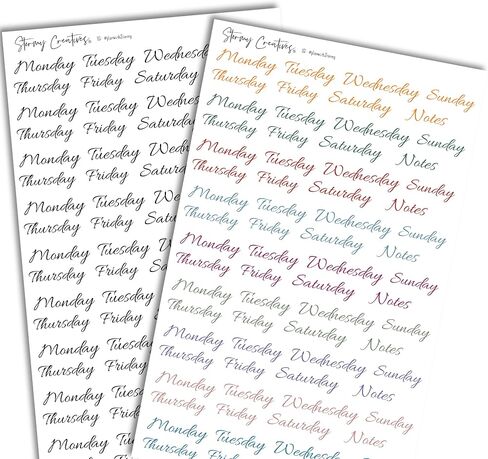 Stormy Creatives
Monday Tuesday Wednesd
Thursday Friday Saturday
Monday Tuesday Wedne
Thursday Friday Saturday
Monday Tuesday Wed
Thursday Friday Satu
Monday Tuesday Wed
Thursday Friday Satu
Monday Tuesday W
Thursday Friday Sat
Monday Tuesday
Thursday Friday Sa
Monday Tuesda
Thursday Friday S
Monday Tuesd
Thursday Friday
Monday Tues
Thursday Frid
Monday Tue
Stormy Creatives
Monday Tuesday Wednesday Sunday
Thursday Friday Saturday Notes
Monday Tuesday Wednesday Sunday
Thursday Friday Saturday Notes
Monday Tuesday Wednesday Sunday
Thursday Friday Saturday Notes
Monday Tuesday Wednesday Sunday
Thursday Friday Saturday Notes
Monday Tuesday Wednesday Sunday
Thursday Friday Saturday Notes
Monday Tuesday Wednesday Sunday
Thursday Friday Saturday Notes
Monday Tuesday Wednesday Sunday
Thursday Friday Saturday Notes
Monday Tuesday Wednesday Sunday
Thursday Friday Saturday Notes
Monday Tuesday Wednesday Sunday